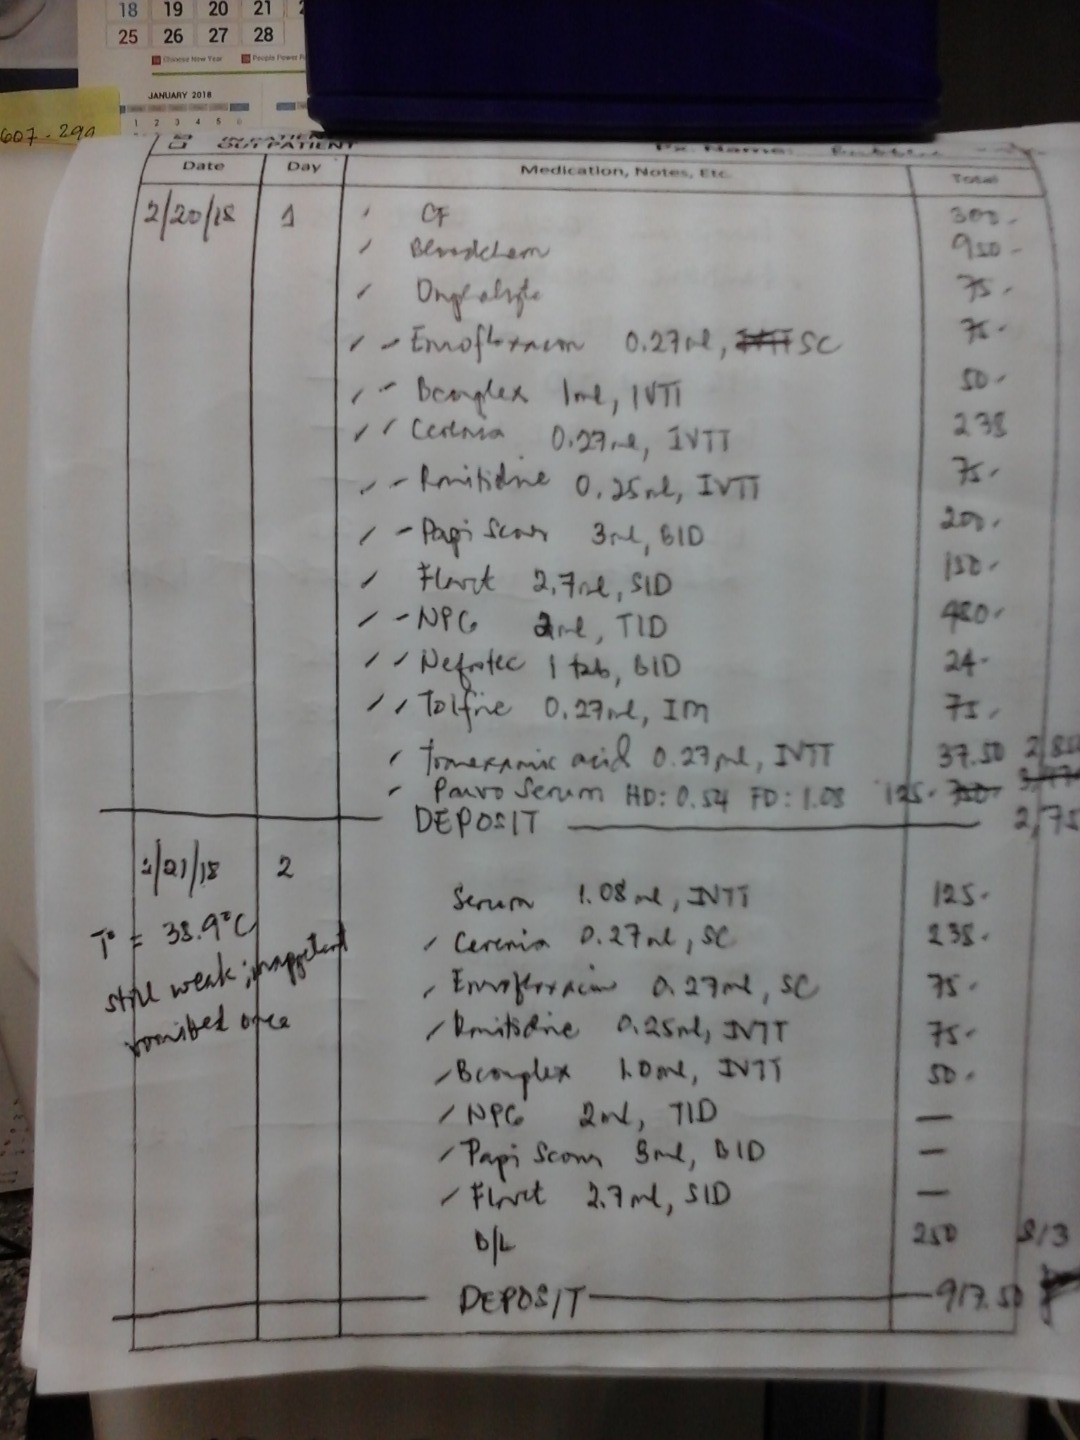 18 19 20 21
25 26 27 28
Chinese New Year People Power
JANUARY 2018
1 2 3 4 5 6
607-299
IN PATIENT
OUT PATIENT Px. Name:
Date Day Medication, Notes, Etc. Total
2/20/18 1 CF 300-
Bloodchem 950-
75-
Enrofloxacin 0.27ml, SC 75-
Bcomplex 1ml, IVTT 50-
Cerenia 0.27ml, IVTT 238
Ranitidine 0.25ml, IVTT 75-
Papi Scour 3ml, BID 200-
2.7ml, SID 150-
NPG 2ml, TID 480-
Nefrotec 1 tab, BID 24-
Tolfine 0.27ml, IM 75-
Tranexamic acid 0.27ml, IVTT 37.50
Parvo Serum HD: 0.54 FD: 1.08 125-
DEPOSIT
2/21/18 2
Serum 1.08ml, IVTT 125-
T° = 38.9°C Cerenia 0.27ml, SC 238-
still weak; inappetent Enrofloxacin 0.27ml, SC 75-
vomited once Ranitidine 0.25ml, IVTT 75-
Bcomplex 1.0ml, IVTT 50-
NPG 2ml, TID —
Papi Scour 3ml, BID —
2.7ml, SID —
D/L 250 813
DEPOSIT 917.50